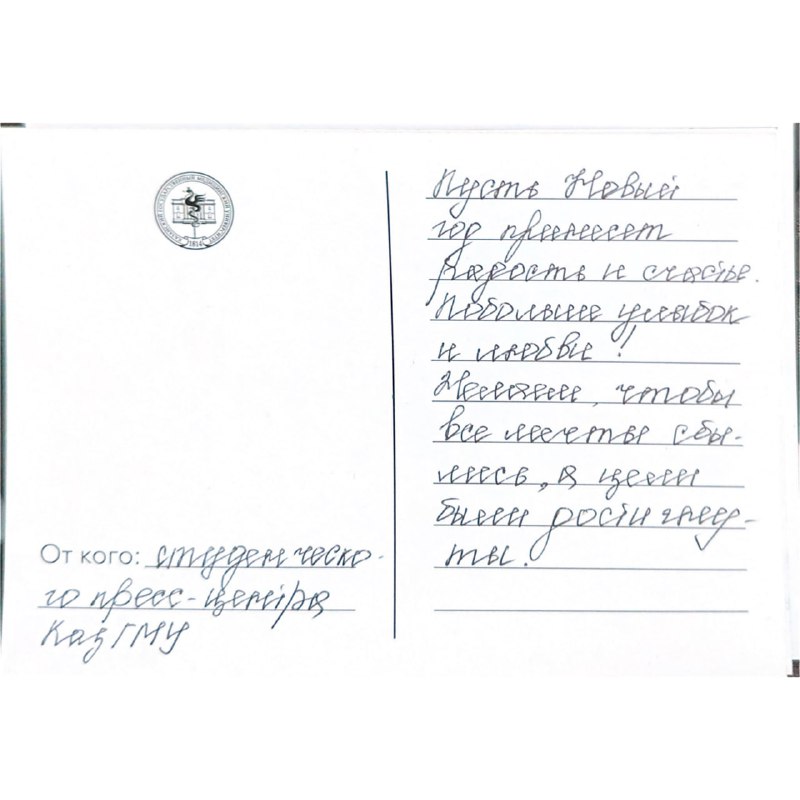 КАЗАНСКИЙ ГОСУДАРСТВЕННЫЙ МЕДИЦИНСКИЙ УНИВЕРСИТЕТ
1814
От кого: студенческо-
го пресс-центра
КазГМУ
Пусть Новый
год принесет
радость и счастье.
Побольше улыбок
и любви!
Желаем, чтобы
все мечты сбы-
лись, а цели
были достигну-
ты.